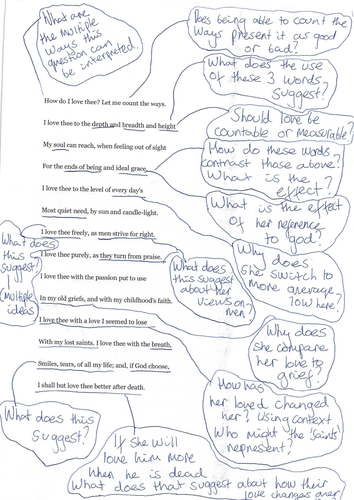 What are
the multiple
ways this
question can
be interpreted.
Does being able to count the
ways present it as good
or bad?
What does the use
of these 3 words
suggest?
How do I love thee? Let me count the ways.
I love thee to the depth and breadth and height
My soul can reach, when feeling out of sight
For the ends of being and ideal grace.
I love thee to the level of every day's
Most quiet need, by sun and candle-light.
I love thee freely, as men strive for right.
I love thee purely, as they turn from praise.
I love thee with the passion put to use
In my old griefs, and with my childhood's faith.
I love thee with a love I seemed to lose
With my lost saints. I love thee with the breath,
Smiles, tears, of all my life; and, if God choose,
I shall but love thee better after death.
Should love be
countable or measurable?
How do these words
contrast those above?
What is the
effect?
What is the effect
of her reference
to god?
Why does
she switch to
more average
love here?
What does
this
suggest?
(multiple
ideas)
What does
this suggest
about her
views on
men?
Why does
she compare
her love to
grief?
How has
her loved changed
her? Using context
who might the 'saints'
represent?
What does this
suggest?
If she will
love him more
when he is dead
What does that suggest about how their
love changes over